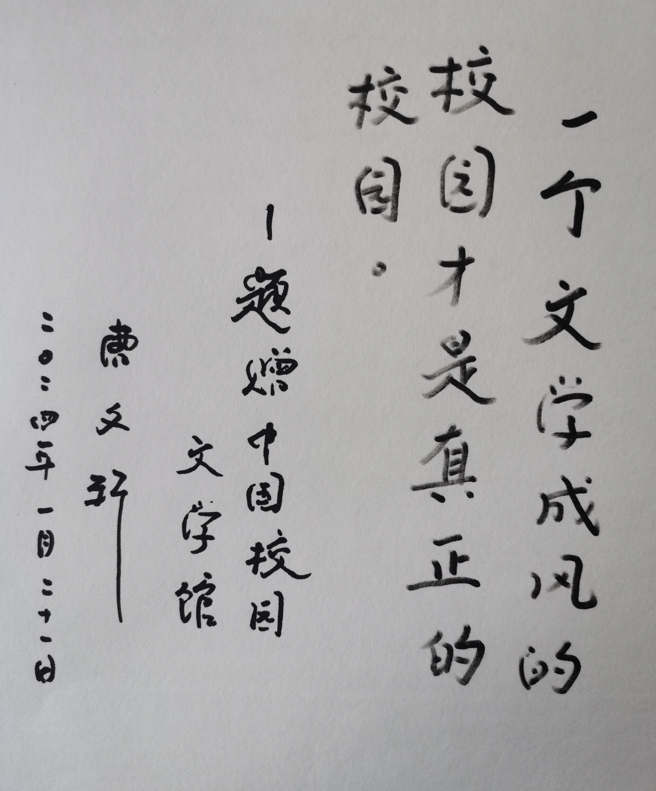 一个文学成风的
校园才是真正的
校园。
—题赠中国校园
文学馆
曹文轩
二〇二四年一月二十一日